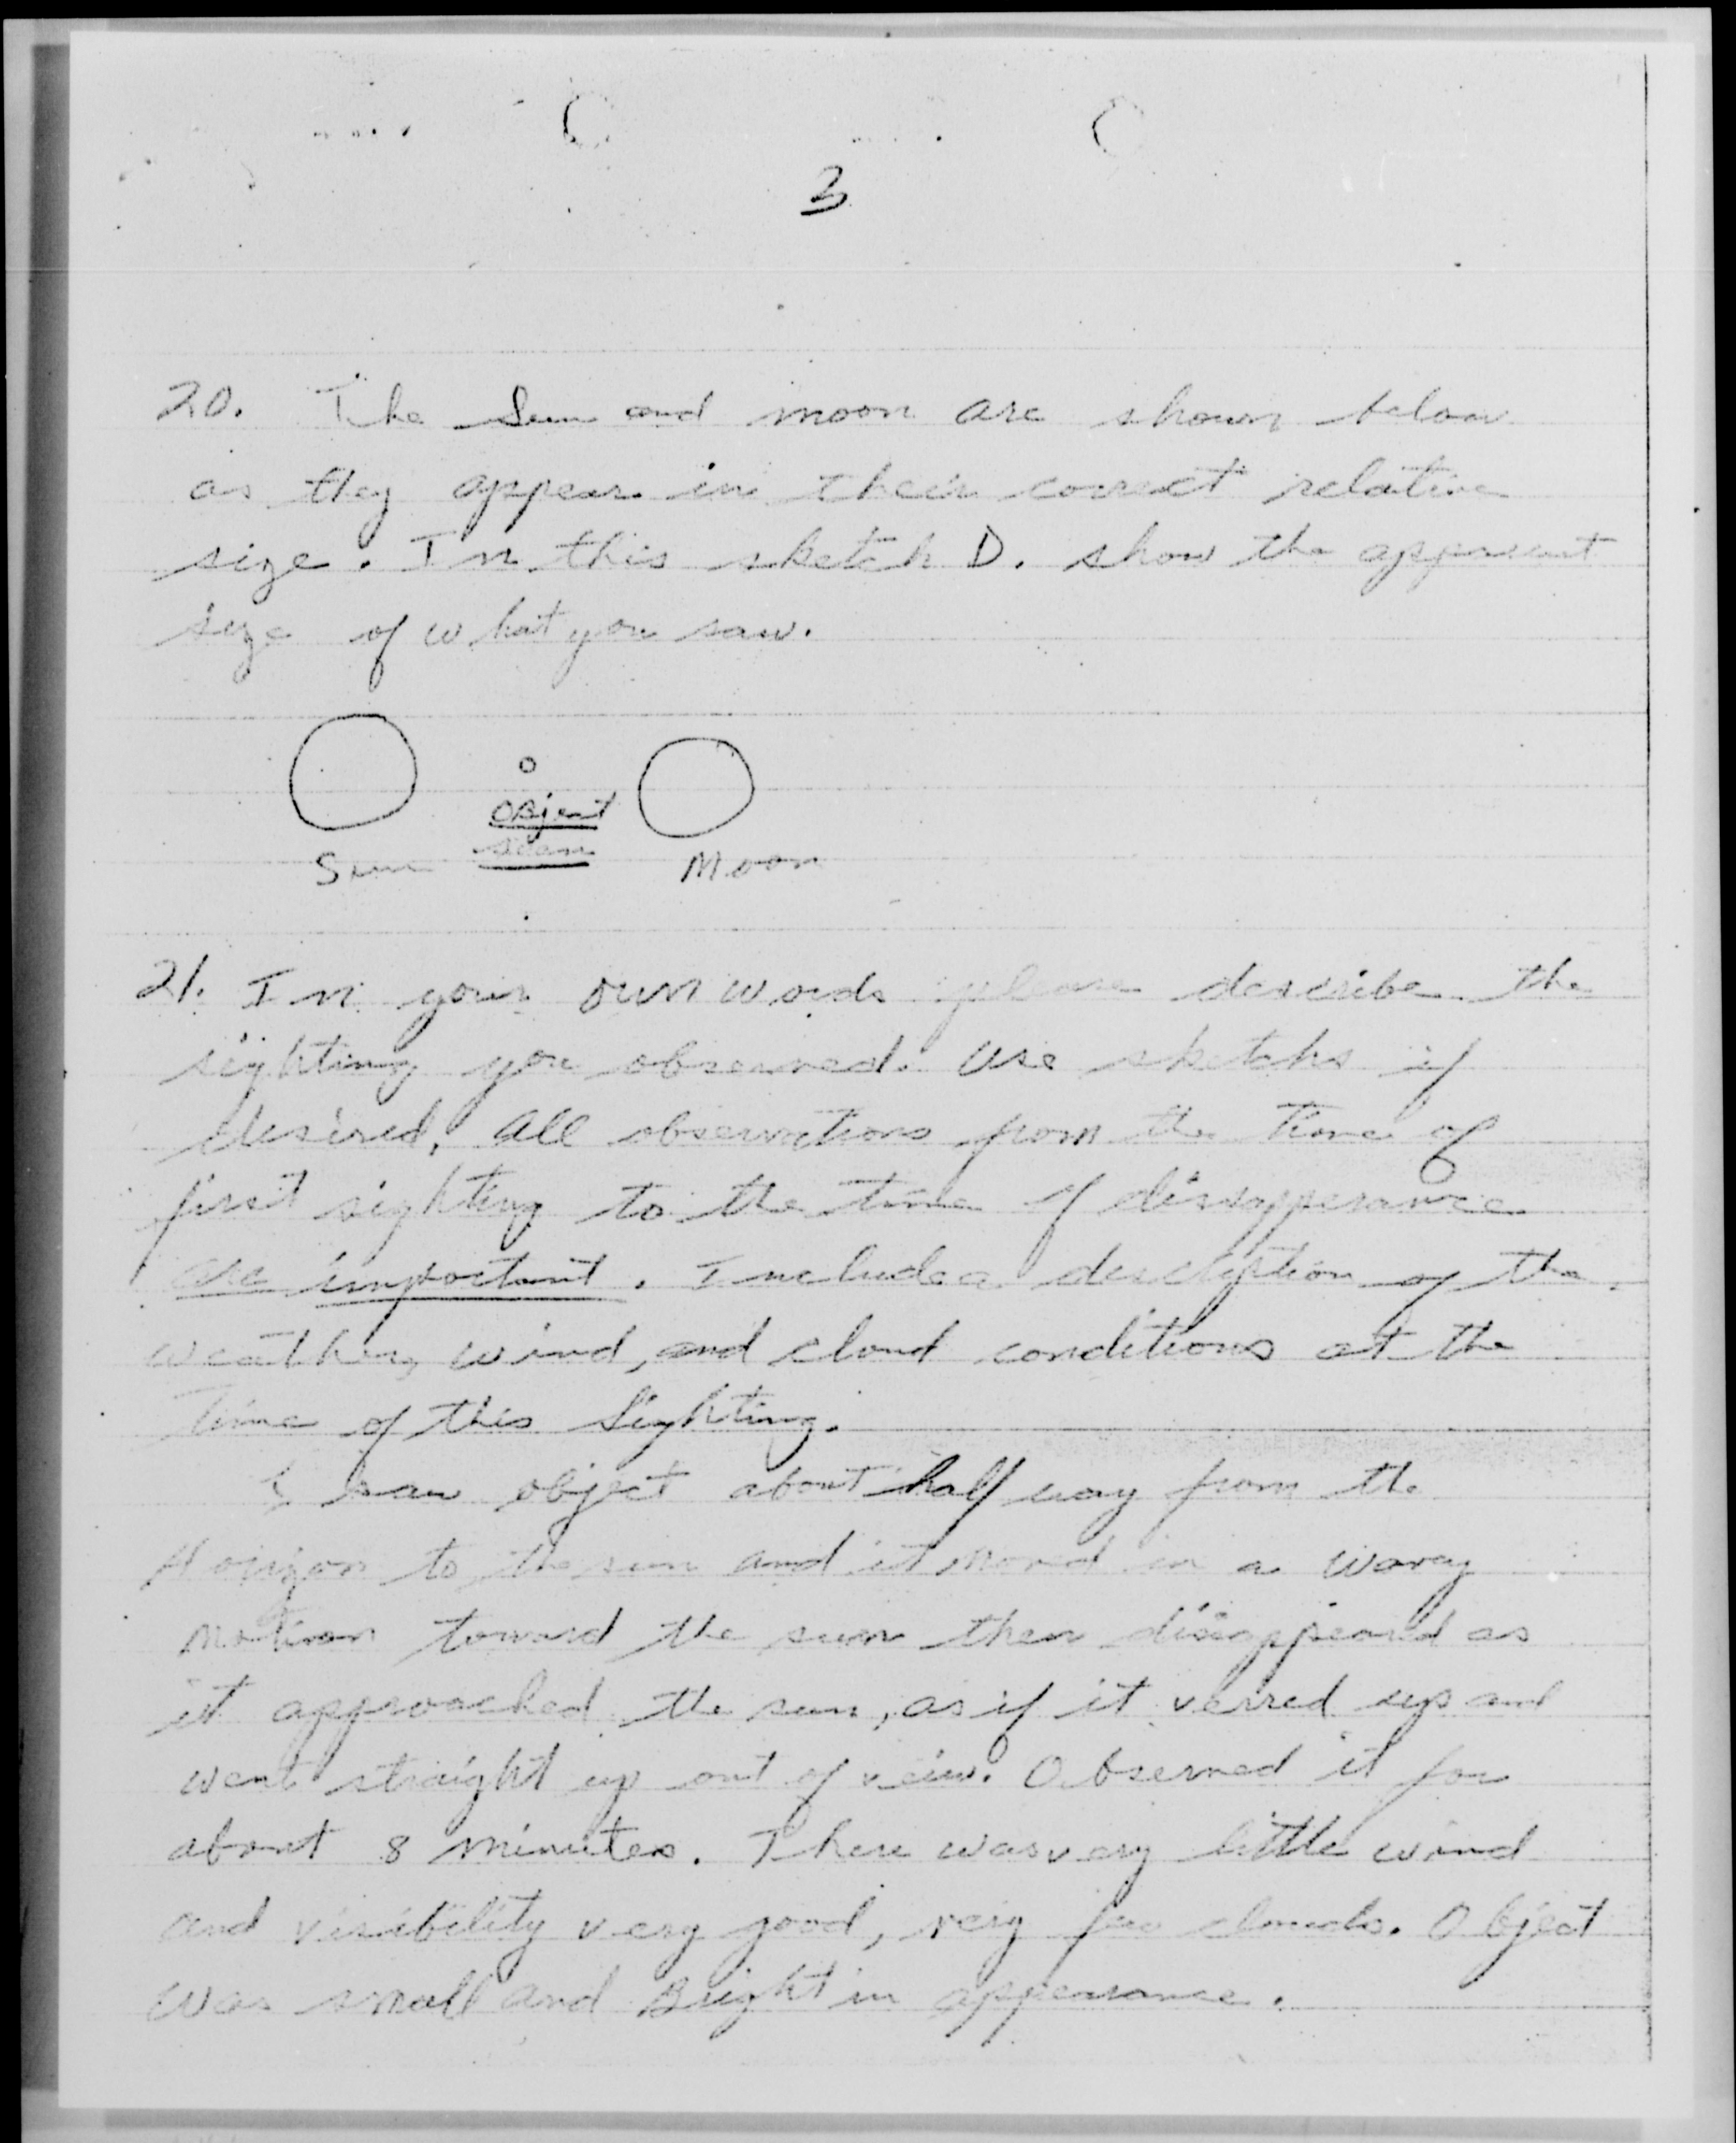 3
20. The Sun and moon are shown below
as they appear in their correct relative
size. In this sketch D. show the apparent
size of what you saw.
Object
seen
Sun Moon
21. In your own words please describe the
sighting you observed. Use sketchs if
desired. All observations from the time of
first sighting to the time of dissapperance
are important. Include a description of the
weather, wind, and cloud conditions at the
Time of this Sighting.
I saw object about half way from the
Horizon to the sun and it moved in a wavey
motion toward the sun then dissappeared as
it approached the sun, as if it verred up and
went straight up out of veiw. Observed it for
about 8 minutes. There was very little wind
and visibility very good, very few clouds. Object
was small and Bright in appearance.